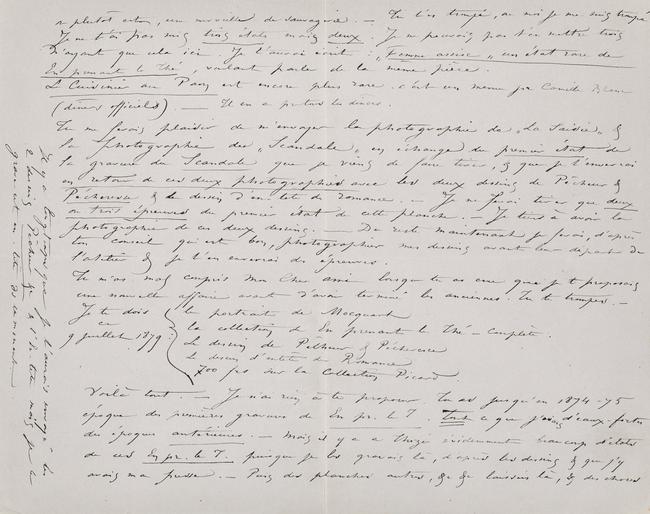 plutôt cela, une nouvelle de sauvagerie. — Tu t'es trompé, ou moi je me suis trompé
Je ne t'ai pas mis trois états mais deux. Je ne pouvais pas t'en mettre trois
n'ayant que cela ici. Je t'avais écrit : "Femme assise" un état rare de
En prenant le Thé, voulant parler de la même pièce.
Le Cuisinier au Pays est encore plus rare. c'est un menu par Camille
(dîners officiels). — Il en a pris tous les dîners.
Tu me ferais plaisir de m'envoyer la photographie de "La Saisie" &
la photographie du "Scandale" en échange du premier état de
la gravure du Scandale que je viens de faire tirer, & que je t'enverrai
en retour de ces deux photographies avec les deux dessins de Pêcheur &
Pêcheresse & le dessin d'en tête de romance. — Je ne ferai tirer que deux
ou trois épreuves du premier état de cette planche. — Je tiens à avoir la
photographie de ces deux dessins — Du reste maintenant je ferai, d'après
ton conseil qui est bon, photographier mes dessins avant leur départ de
l'atelier & je t'en enverrai des épreuves.
Tu m'as mal compris mon cher ami lorsque tu as cru que je te proposais
une nouvelle affaire avant d'avoir terminé les anciennes. Tu te trompes. —
Je te dois
ce
9 juillet 1879 :
le portrait de Mocquard
la collection de En prenant le thé — complète.
Le dessin de Pêcheur & Pêcheresse
Le dessin d'entête de Romance
700 frs sur la Collection Picard
Voilà tout. — Je n'ai rien à te proposer. Tu as jusqu'en 1874-75
époque des premières gravures de En pr. le T. tout ce que j'avais d'eaux-fortes
des époques antérieures. — Mais il y a à évidemment beaucoup d'états
de ces En pr. le T. puisque je les gravais là, d'après les dessins & que j'y
avais ma presse. — Puis des planches autres, &c &c laissées là, & des choses
Il y a longtemps que je t'aurais envoyé les
2 dessins Pêcheur &c & l'en tête mais je les
grave en ce moment